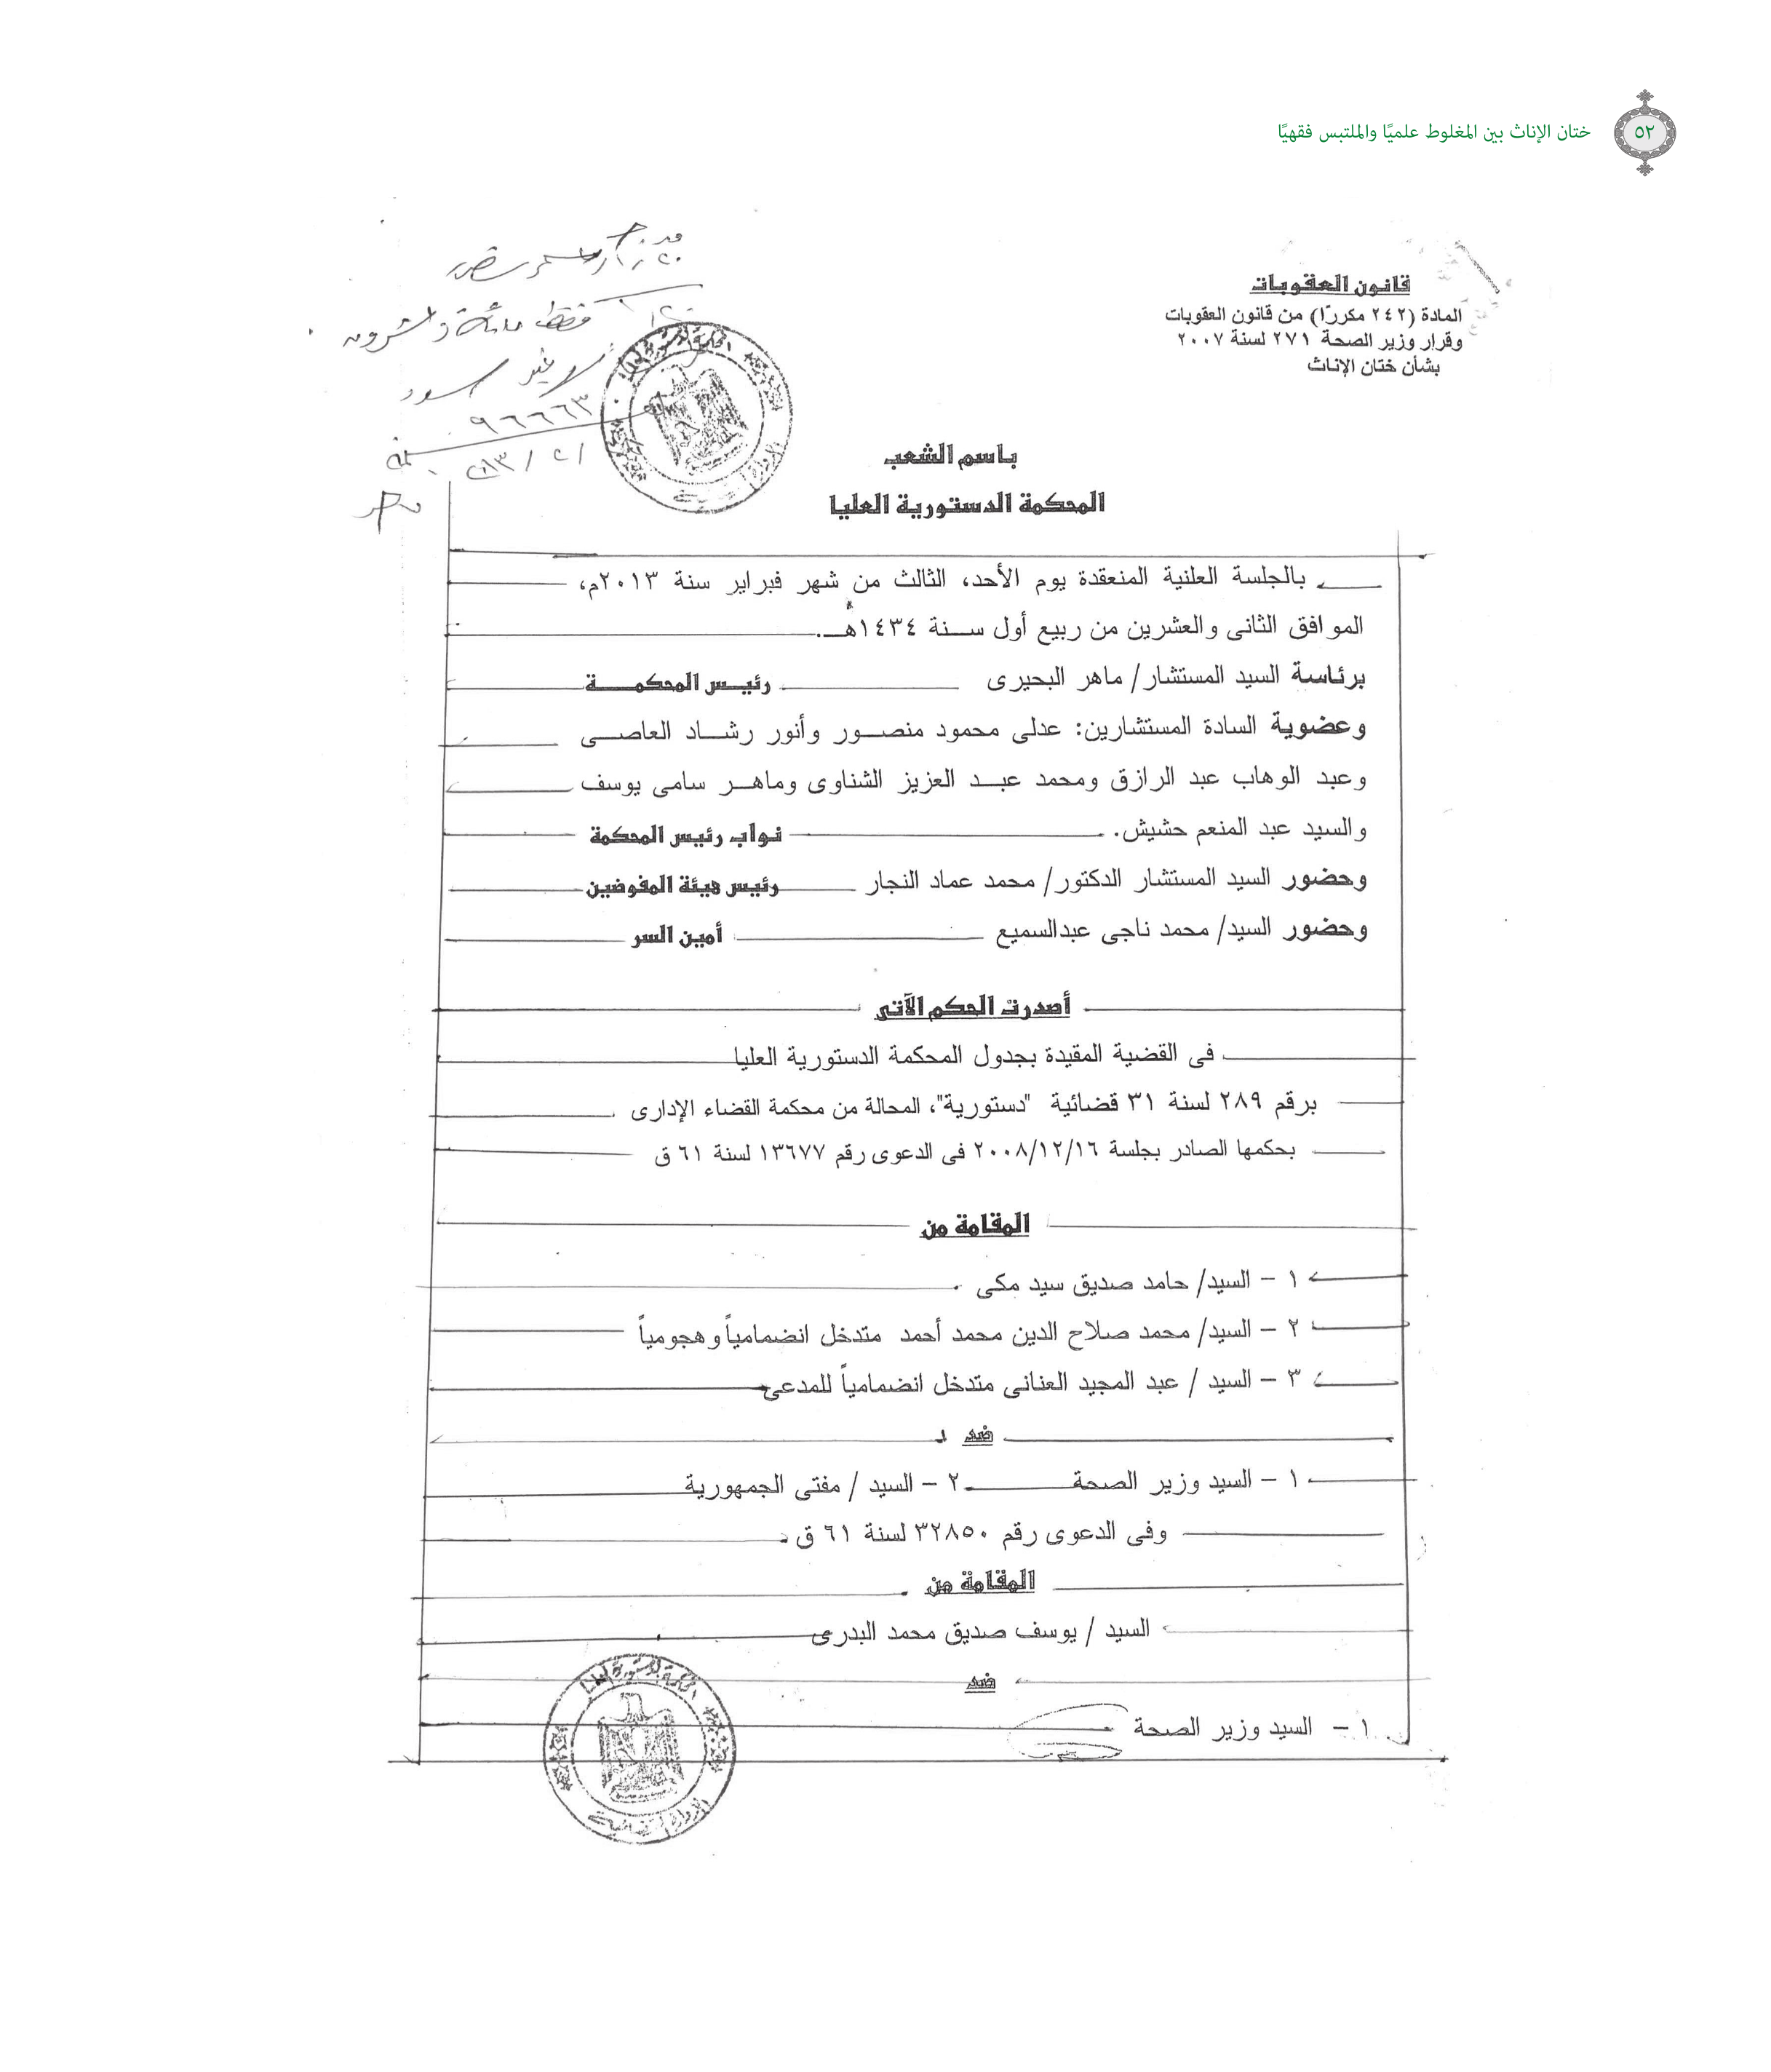 ٥٢
ختان الإناث بين المغلوط علميًا والملتبس فقهيًا
قانون العقوبات
المادة (٢٤٢ مكررًا) من قانون العقوبات
وقرار وزير الصحة ٢٧١ لسنة ٢٠٠٧
بشأن ختان الإناث
فقط مائة وعشرون
لا غير
٩٦٦٦٣
باسم الشعب
المحكمة الدستورية العليا
بالجلسة العلنية المنعقدة يوم الأحد، الثالث من شهر فبراير سنة ٢٠١٣م،
الموافق الثانى والعشرين من ربيع أول سنة ١٤٣٤هـ.
برئاسة السيد المستشار/ ماهر البحيرى رئيس المحكمة
وعضوية السادة المستشارين: عدلى محمود منصور وأنور رشاد العاصى
وعبد الوهاب عبد الرازق ومحمد عبد العزيز الشناوى وماهر سامى يوسف
والسيد عبد المنعم حشيش. نواب رئيس المحكمة
وحضور السيد المستشار الدكتور/ محمد عماد النجار رئيس هيئة المفوضين
وحضور السيد/ محمد ناجى عبدالسميع أمين السر
أصدرت الحكم الآتى
فى القضية المقيدة بجدول المحكمة الدستورية العليا
برقم ٢٨٩ لسنة ٣١ قضائية "دستورية"، المحالة من محكمة القضاء الإدارى
بحكمها الصادر بجلسة ٢٠٠٨/١٢/١٦ فى الدعوى رقم ١٣٦٧٧ لسنة ٦١ ق
المقامة من
١ – السيد/ حامد صديق سيد مكى
٢ – السيد/ محمد صلاح الدين محمد أحمد متدخل انضمامياً وهجومياً
٣ – السيد / عبد المجيد العنانى متدخل انضمامياً للمدعى
ضد
١ – السيد وزير الصحة ٢ – السيد / مفتى الجمهورية
وفى الدعوى رقم ٣٢٨٥٠ لسنة ٦١ ق
المقامة من
السيد / يوسف صديق محمد البدرى
ضد
١ – السيد وزير الصحة